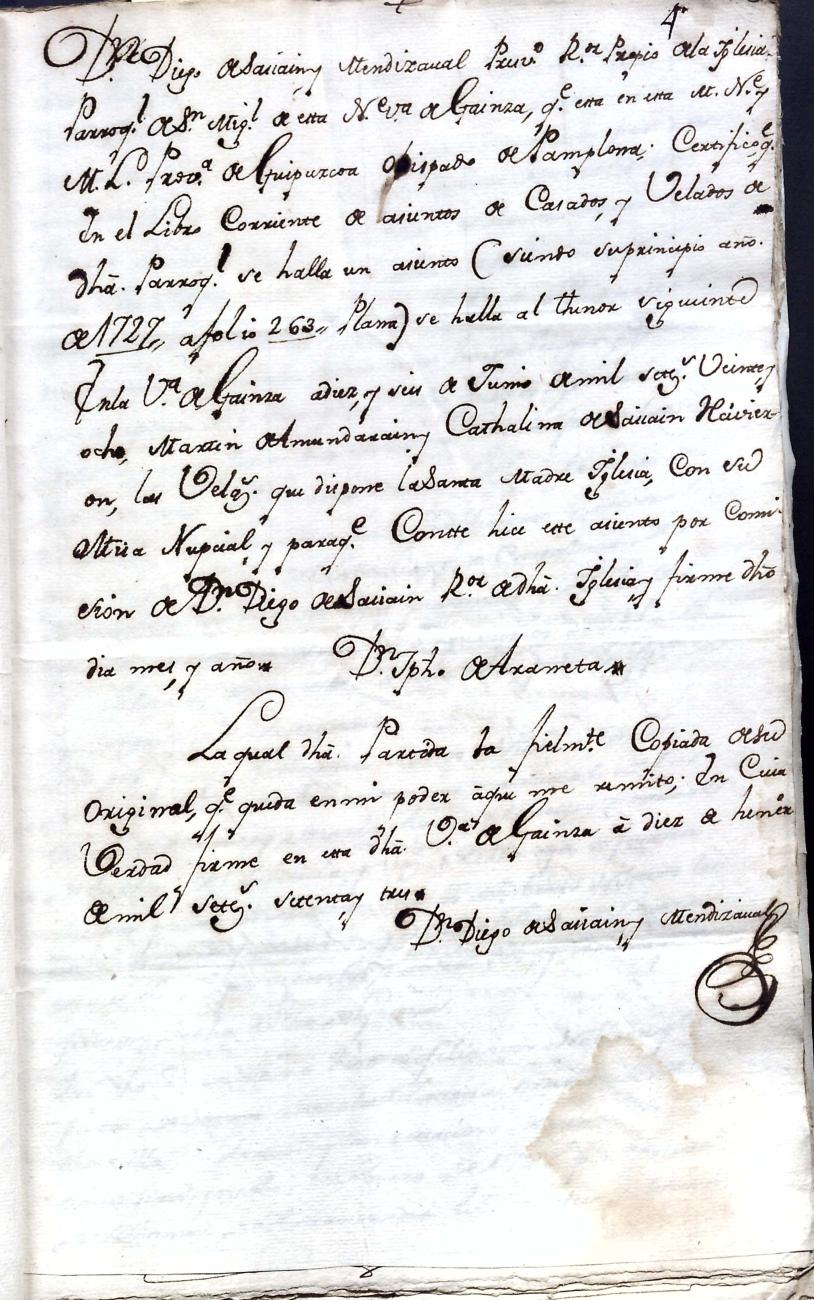 4
Dn Diego de Sasiain, y Mendizaval Presvo Ror Propio de la Iglesia
Parroql de Sn Migl de esta Ne Va de Gainza, qe esta en esta M. Ne y
M. L. Prova de Guipuzcoa obispado de Pamplona; Certifico qe
En el Libro Corriente de asientos de Casados, y Velados de
dha. Parroql se halla un asiento (siendo su principio año.
de 1727,, a folio 263,, Plana) se halla al thenor siguiente
En la Va de Gainza a diez, y seis de Junio de mil setts Veinte, y
ocho, Martin de Amundarain, y Cathalina de Sasiain Recivier
on, las Velas. que dispone la Santa Madre Iglesia, Con su
Missa Nupcial, y para qe Conste hice este asiento por Comi
sión de Dn Diego de Sasiain Ror de dha. Iglesia, y firme dho
dia mes, y año Dn Jph. de Arameta
La qual dha. Partida ba fielmte Copiada de su
Original, qe queda en mi poder âqui me remito; En Cuia
Verdad firme en esta dha. Va de Gainza â diez de henero
de mil setts setenta, y tres
Dn Diego de Sasiain, y Mendizaval